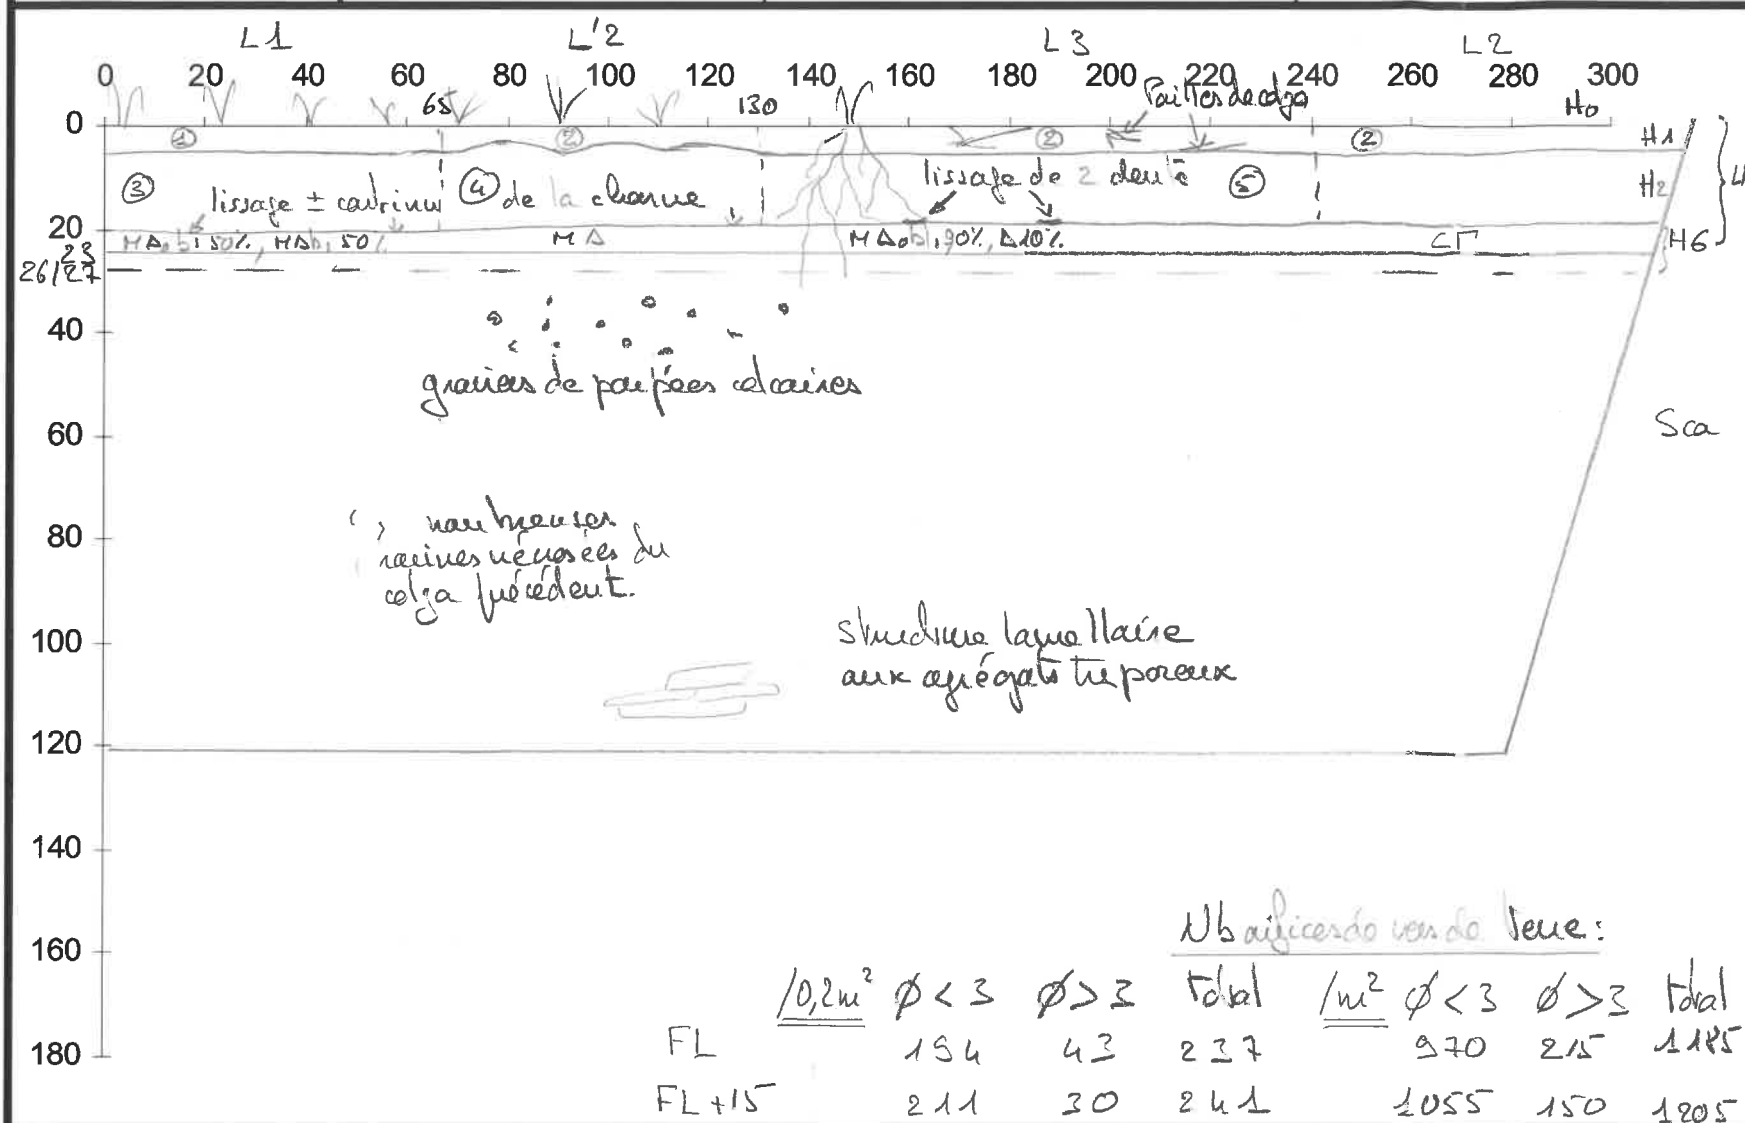 L1 L'2 L3 L2
0 20 40 60 80 100 120 140 160 180 200 220 240 260 280 300
65 130 Pailles de colza H0
0 ① ② ② ② H1
③ lissage ± continu ④ de la charrue lissage de 2 dents ⑤ H2
20 MΔob, 50%, MΔb, 50% MΔ MΔob, 90%, Δ10% CΓ H6
23
26/27
40
graviers de poupées calcaires
60 Sca
80 nombreuses
racines nécrosées du
colza précédent.
100 structure lamellaire
aux agrégats très poreux
120
140
160 Nb orifices de vers de terre:
/0,2m² Ø<3 Ø>3 total /m² Ø<3 Ø>3 total
180 FL 194 43 237 970 215 1185
FL+15 211 30 241 1055 150 1205